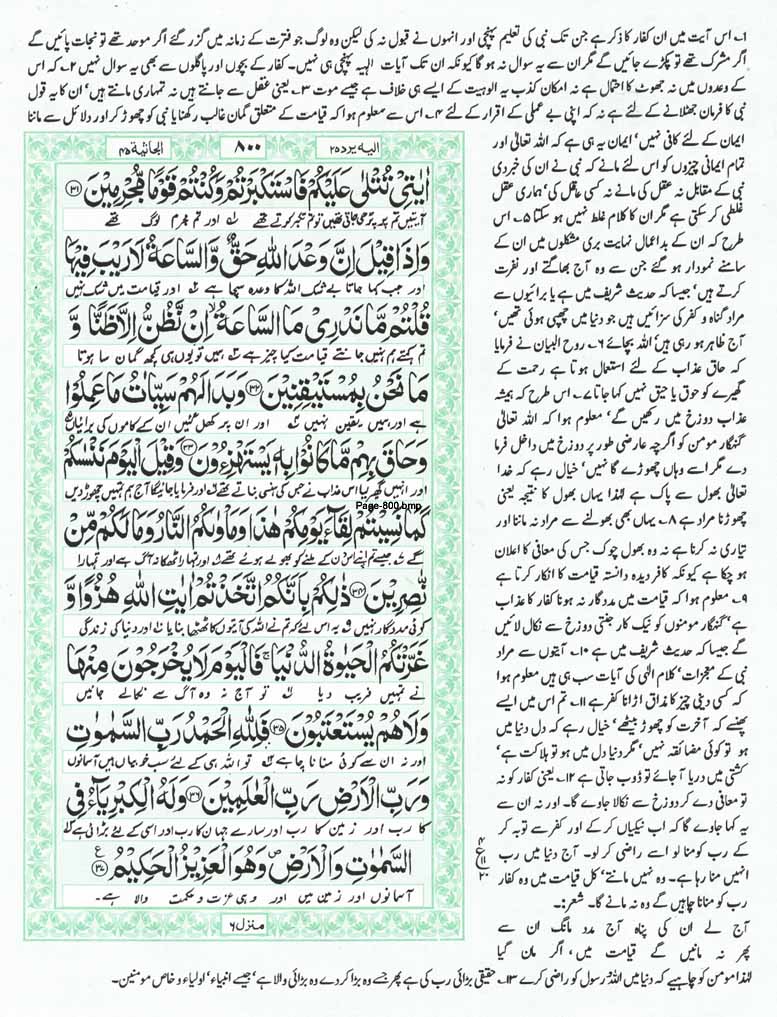 ۱۔ اس آیت میں ان کفار کا ذکر ہے جن تک نبی کی تعلیم پہنچی اور انہوں نے قبول نہ کی لیکن وہ لوگ جو فترت کے زمانہ میں گزر گئے اگر موحد تھے تو نجات پائیں گے
اگر مشرک تھے تو پکڑے جائیں گے مگر ان سے یہ سوال نہ ہو گا کیونکہ ان تک آیات الہیہ پہنچی ہی نہیں۔ کفار کے بچوں اور پاگلوں سے بھی یہ سوال نہیں ۲۔ کہ اس
کے وعدوں میں نہ جھوٹ کا احتمال ہے نہ امکان کذب یہ الوہیت کے ایسے ہی خلاف ہے جیسے موت ۳۔ یعنی عقل سے جانتے ہیں نہ تمہاری مانتے ہیں' ان کا یہ قول
نبی کا فرمان جھٹلانے کے لئے ہے نہ کہ اپنی بے عملی کے اقرار کے لئے ۴۔ اس سے معلوم ہوا کہ قیامت کے متعلق گمان غالب رکھنا یا نبی کو چھوڑ کر اور دلائل سے ماننا
ایمان کے لئے کافی نہیں' ایمان یہ ہی ہے کہ اللہ تعالیٰ اور
تمام ایمانی چیزوں کو اس لئے مانے کہ نبی نے ان کی خبر دی
نبی کے مقابل نہ عقل کی مانے نہ کسی عاقل کی' ہماری عقل
غلطی کر سکتی ہے مگر ان کا کلام غلط نہیں ہو سکتا ۵۔ اس
طرح کہ ان کے بداعمال نہایت بری شکلوں میں ان کے
سامنے نمودار ہو گئے جن سے وہ آج بھاگتے اور نفرت
کرتے ہیں' جیسا کہ حدیث شریف میں ہے یا برائیوں سے
مراد گناہ و کفر کی سزائیں ہیں جو دنیا میں چھپی ہوئی تھیں'
آج ظاہر ہو رہی ہیں' اللہ بچائے ۶۔ روح البیان نے فرمایا
کہ حاق عذاب کے لئے استعمال ہوتا ہے رحمت کے
گھیرے کو حوق یا حیق نہیں کہا جاتا ۷۔ اس طرح کہ ہمیشہ
عذاب دوزخ میں رکھیں گے' معلوم ہوا کہ اللہ تعالیٰ
گنہگار مومن کو اگرچہ عارضی طور پر دوزخ میں داخل فرما
دے مگر اسے وہاں چھوڑے گا نہیں' خیال رہے کہ خدا
تعالیٰ بھول سے پاک ہے لہٰذا یہاں بھول کا نتیجہ یعنی
چھوڑنا مراد ہے ۸۔ یہاں بھی بھولنے سے مراد نہ ماننا اور
تیاری نہ کرنا ہے نہ وہ بھول چوک جس کی معافی کا اعلان
ہو چکا ہے کیونکہ کافر دیدہ دانستہ قیامت کا انکار کرتا ہے
۹۔ معلوم ہوا کہ قیامت میں مددگار نہ ہونا کفار کا عذاب
ہے' گنہگار مومنوں کو نیک کار جنتی دوزخ سے نکال لائیں
گے جیسا کہ حدیث شریف میں ہے ۱۰۔ آیتوں سے مراد
نبی کے معجزات' کلام الٰہی کی آیات سب ہی ہیں معلوم ہوا
کہ کسی دینی چیز کا مذاق اڑانا کفر ہے ۱۱۔ تم اس میں ایسے
پھنسے کہ آخرت کو چھوڑ بیٹھے' خیال رہے کہ دل دنیا میں
ہو تو کوئی مضائقہ نہیں' مگر دنیا دل میں ہو تو ہلاکت ہے'
کشتی میں دریا آ جائے تو ڈوب جاتی ہے ۱۲۔ یعنی کفار کو نہ
تو معافی دے کر دوزخ سے نکالا جاوے گا۔ اور نہ ان سے
یہ کہا جاوے گا کہ اب نیکیاں کر کے اور کفر سے توبہ کر
کے رب کو منا لو اسے راضی کر لو۔ آج دنیا میں رب
انہیں منا رہا ہے۔ وہ نہیں مانتے' کل قیامت میں وہ کفار
رب کو منانا چاہیں گے وہ نہ مانے گا۔ شعر:۔
آج لے ان کی پناہ آج مدد مانگ ان سے
پھر نہ مانیں گے قیامت میں' اگر مان گیا
لہٰذا مومن کو چاہیے کہ دنیا میں اللہ' رسول کو راضی کرے ۱۳۔ حقیقی بڑائی رب کی ہے پھر جسے وہ بڑا کر دے وہ بڑائی والا ہے' جیسے انبیاء' اولیاء و خاص مومنین۔
الیه یرد ۲۵ ۸۰۰ الجاثیة ۴۵
اٰیٰتِیْ تُتْلٰی عَلَیْكُمْ فَاسْتَكْبَرْتُمْ وَكُنْتُمْ قَوْمًا مُّجْرِمِیْنَ ۳۱
آیتیں تم پر پڑھی جاتی تھیں تو تم تکبر کرتے تھے اور تم مجرم لوگ تھے
وَاِذَا قِیْلَ اِنَّ وَعْدَ اللّٰهِ حَقٌّ وَّالسَّاعَةُ لَا رَیْبَ فِیْهَا
اور جب کہا جاتا بے شک اللہ کا وعدہ سچا ہے اور قیامت میں شک نہیں
قُلْتُمْ مَّا نَدْرِیْ مَا السَّاعَةُ ۙ اِنْ نَّظُنُّ اِلَّا ظَنًّا وَّ
تم کہتے ہم نہیں جانتے قیامت کیا چیز ہے ہمیں تو یوں ہی کچھ گمان سا ہوتا
مَا نَحْنُ بِمُسْتَیْقِنِیْنَ ۳۲ وَبَدَا لَهُمْ سَیِّاٰتُ مَا عَمِلُوْا
ہے اور ہمیں یقین نہیں اور ان پر کھل گئیں ان کے کاموں کی برائیاں
وَحَاقَ بِهِمْ مَّا كَانُوْا بِهٖ یَسْتَهْزِءُوْنَ ۳۳ وَقِیْلَ الْیَوْمَ نَنْسٰىكُمْ
اور انہیں گھیر لیا اس عذاب نے جس کی ہنسی بناتے تھے اور فرمایا جائیگا آج ہم تمہیں چھوڑ دیں
Page-800.bmp
كَمَا نَسِیْتُمْ لِقَآءَ یَوْمِكُمْ هٰذَا وَمَاْوٰىكُمُ النَّارُ وَمَا لَكُمْ مِّنْ
گے جیسے تم اپنے اس دن کے ملنے کو بھولے ہوئے تھے اور تمہارا ٹھکانا آگ ہے اور تمہارا
نّٰصِرِیْنَ ۳۴ ذٰلِكُمْ بِاَنَّكُمُ اتَّخَذْتُمْ اٰیٰتِ اللّٰهِ هُزُوًا وَّ
کوئی مددگار نہیں یہ اس لئے کہ تم نے اللہ کی آیتوں کا ٹھٹھا بنایا اور دنیا کی زندگی
غَرَّتْكُمُ الْحَیٰوةُ الدُّنْیَا ۚ فَالْیَوْمَ لَا یُخْرَجُوْنَ مِنْهَا
نے تمہیں فریب دیا تو آج نہ وہ آگ سے نکالے جائیں
وَلَا هُمْ یُسْتَعْتَبُوْنَ ۳۵ فَلِلّٰهِ الْحَمْدُ رَبِّ السَّمٰوٰتِ
اور نہ ان سے کوئی منانا چاہے تو اللہ ہی کے لئے سب خوبیاں ہیں آسمانوں
وَرَبِّ الْاَرْضِ رَبِّ الْعٰلَمِیْنَ ۳۶ وَلَهُ الْكِبْرِیَآءُ فِی
کا رب اور زمین کا رب اور سارے جہان کا رب اور اسی کے لئے بڑائی ہے
السَّمٰوٰتِ وَالْاَرْضِ ۪ وَهُوَ الْعَزِیْزُ الْحَكِیْمُ ۳۷
آسمانوں اور زمین میں اور وہی عزت و حکمت والا ہے۔
منزل ۶